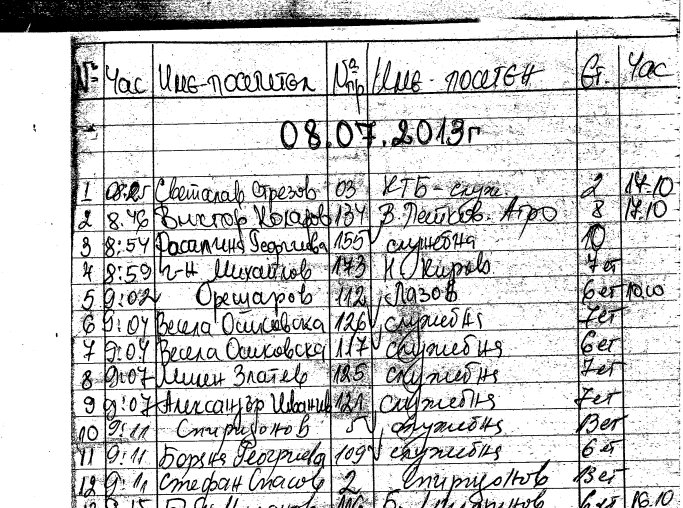 № Час Име-посетител № пр Име - посетен Ет. Час
08.07.2013г
1 08:25 Светослав Стрезов 03 КТБ - служ. 2 14.10
2 8.46 Виктор 134 В. Петков. Агро 8 17.10
3 8:54 Георгиева 155 служебна 10
4 8:59 г-н Михайлов 173 Н Киров 7 ет
5 9:02 Орешаров 112 Лазов 6 ет 10.00
6 9:04 Весела Ошковска 126 служебна 7ет
7 9:04 Весела Ошковска 117 служебня 6ет
8 9:07 Милен Златев 125 служебня 7ет
9 9:07 Александър Иванчев 121 служебня 7ет
10 9:11 Спиридонов служебня 13ет
11 9:11 Боряна Георгиева 109 служебня 6 ет
12 9:11 Стефан Спасов 2 спиридонов 13ет
6 ет 16.10